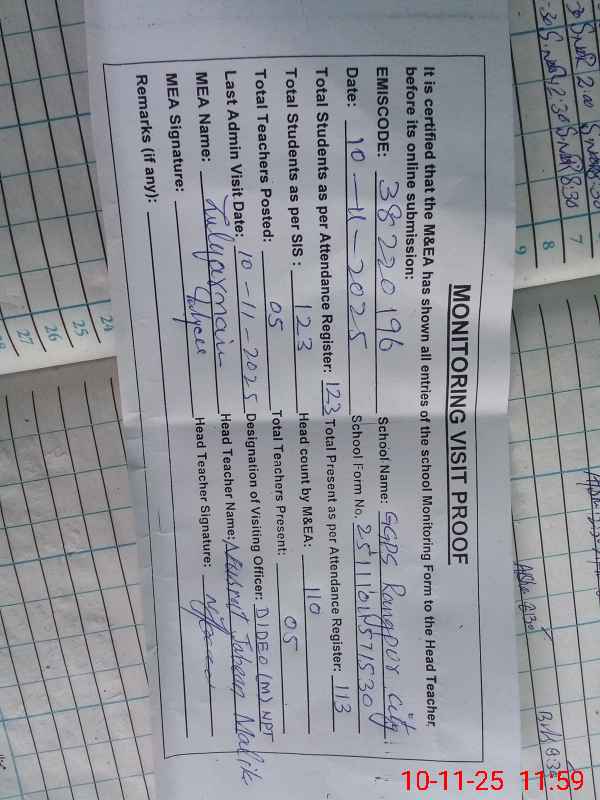 MONITORING VISIT PROOF
It is certified that the M&EA has shown all entries of the school Monitoring Form to the Head Teacher,
before its online submission:
EMISCODE: 38220196 School Name: GGPS Rangpur City
Date: 10-11-2025 School Form No.
Total Students as per Attendance Register: 123 Total Present as per Attendance Register: 113
Total Students as per SIS: 123 Head count by M&EA: 110
Total Teachers Posted: 05 Total Teachers Present: 05
Last Admin Visit Date: 10-11-2025 Designation of Visiting Officer: (M) NPT
MEA Name: Head Teacher Name: Malik
MEA Signature: Head Teacher Signature:
Remarks (if any):
7
8
9
24
25
26
27
28
10-11-25 11:59